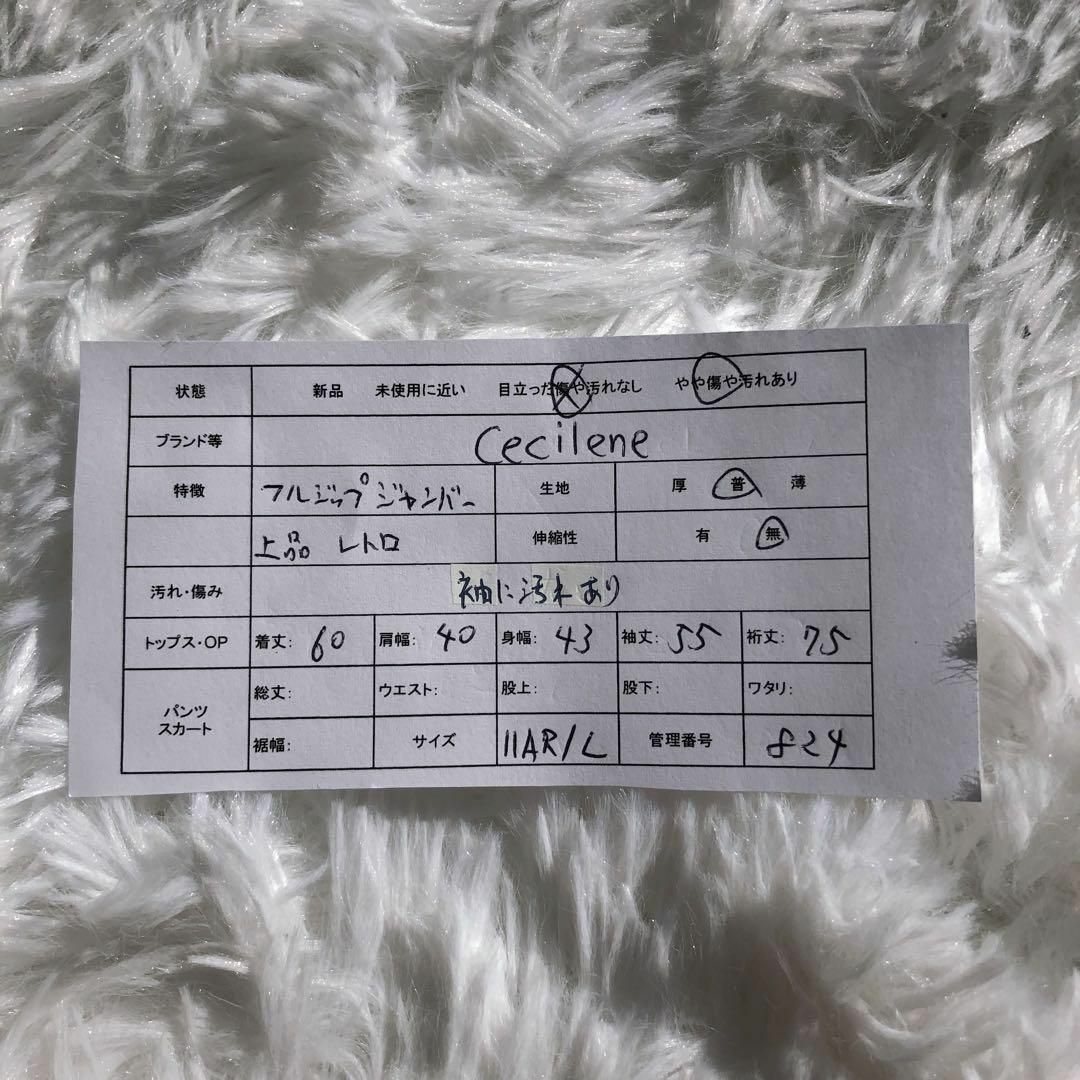 状態 新品 未使用に近い 目立った傷や汚れなし やや傷や汚れあり
ブランド等 Cecilene
特徴 フルジップジャンバー 生地 厚 普 薄
上品 レトロ 伸縮性 有 無
汚れ・傷み 袖に汚れあり
トップス・OP 着丈: 60 肩幅: 40 身幅: 43 袖丈: 55 裄丈: 75
パンツ スカート 総丈: ウエスト: 股上: 股下: ワタリ:
裾幅: サイズ 11AR/L 管理番号 824